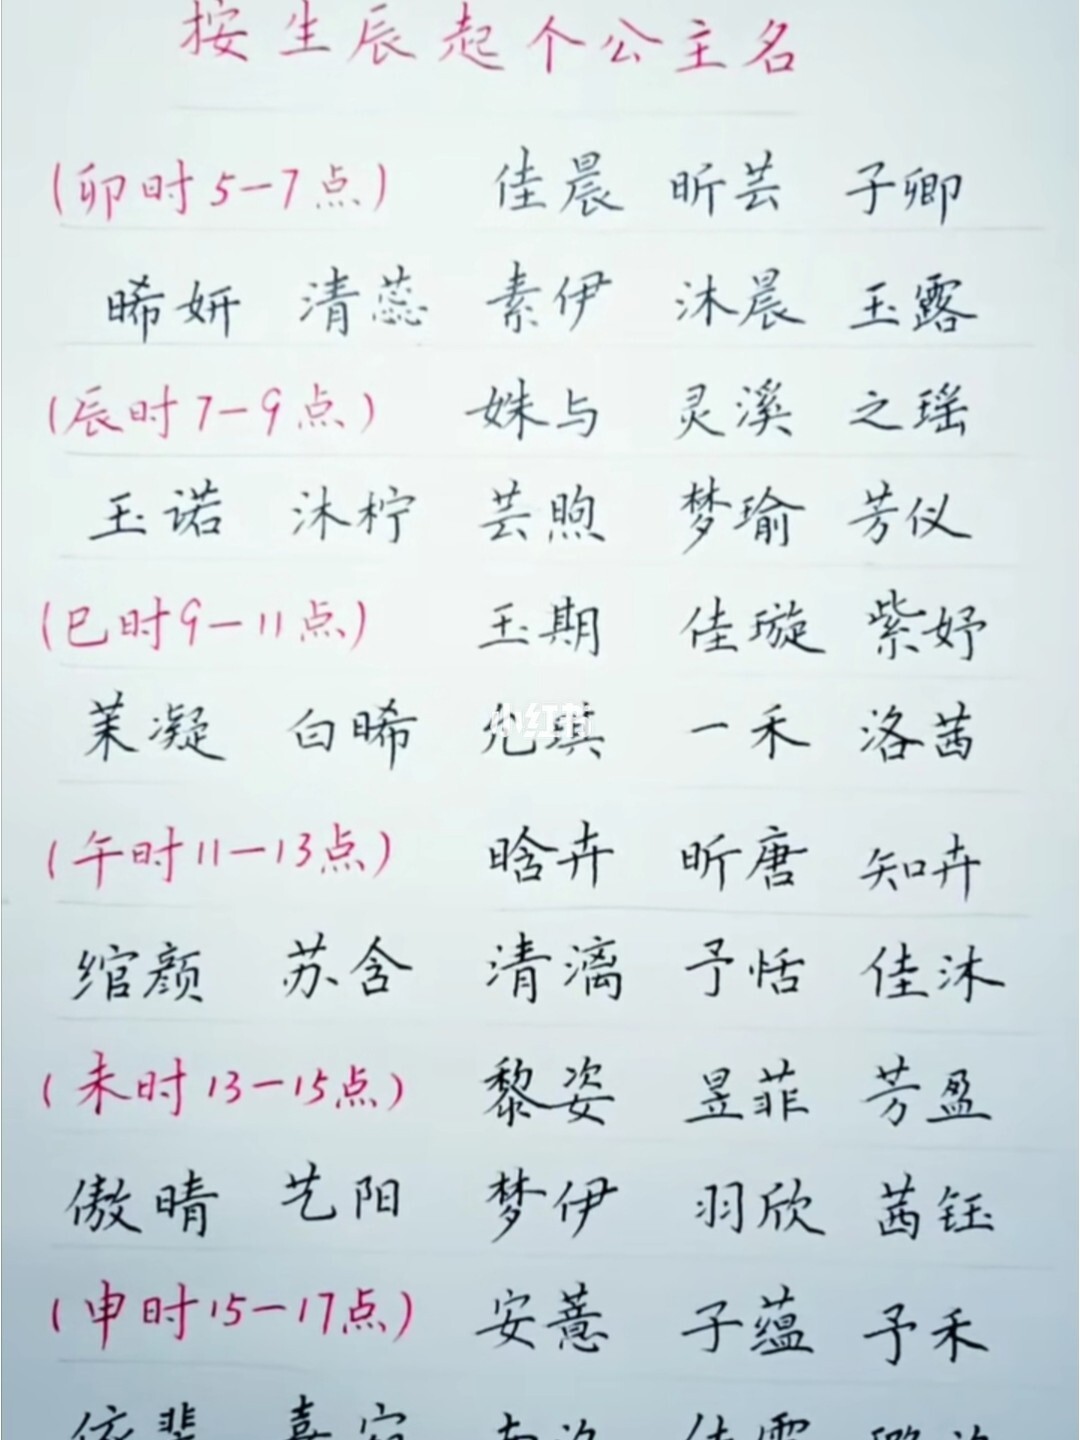 按生辰起个公主名
(卯时5-7点) 佳晨 昕芸 子卿
晞妍 清蕊 素伊 沐晨 玉露
(辰时7-9点) 姝与 灵溪 之瑶
玉诺 沐柠 芸煦 梦瑜 芳仪
(巳时9-11点) 玉期 佳璇 紫妤
茉凝 白晞 允琪 一禾 洛茜
小红书
(午时11-13点) 晗卉 昕唐 知卉
绾颜 苏含 清漓 予恬 佳沐
(未时13-15点) 黎姿 昱菲 芳盈
傲晴 艺阳 梦伊 羽欣 茜钰
(申时15-17点) 安薏 子蕴 予禾